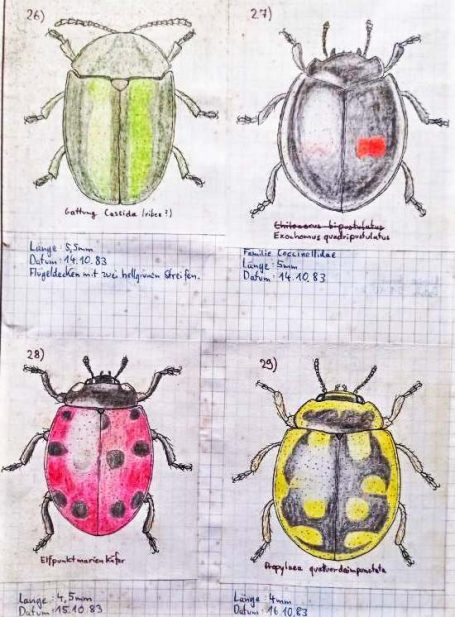 26)
Gattung Cassida (vibex?)
Länge: 5,5mm
Datum: 14.10.83
Flügeldecken mit zwei hellgrünen Streifen.
27)
Chilocorus bipustulatus
Exochomus quadripustulatus
Familie Coccinellidae
Länge: 5mm
Datum: 14.10.83
28)
Elfpunktmarienkäfer
Länge: 4,5mm
Datum: 15.10.83
29)
Propylaea quatuordecimpunctata
Länge: 4mm
Datum: 16.10.83